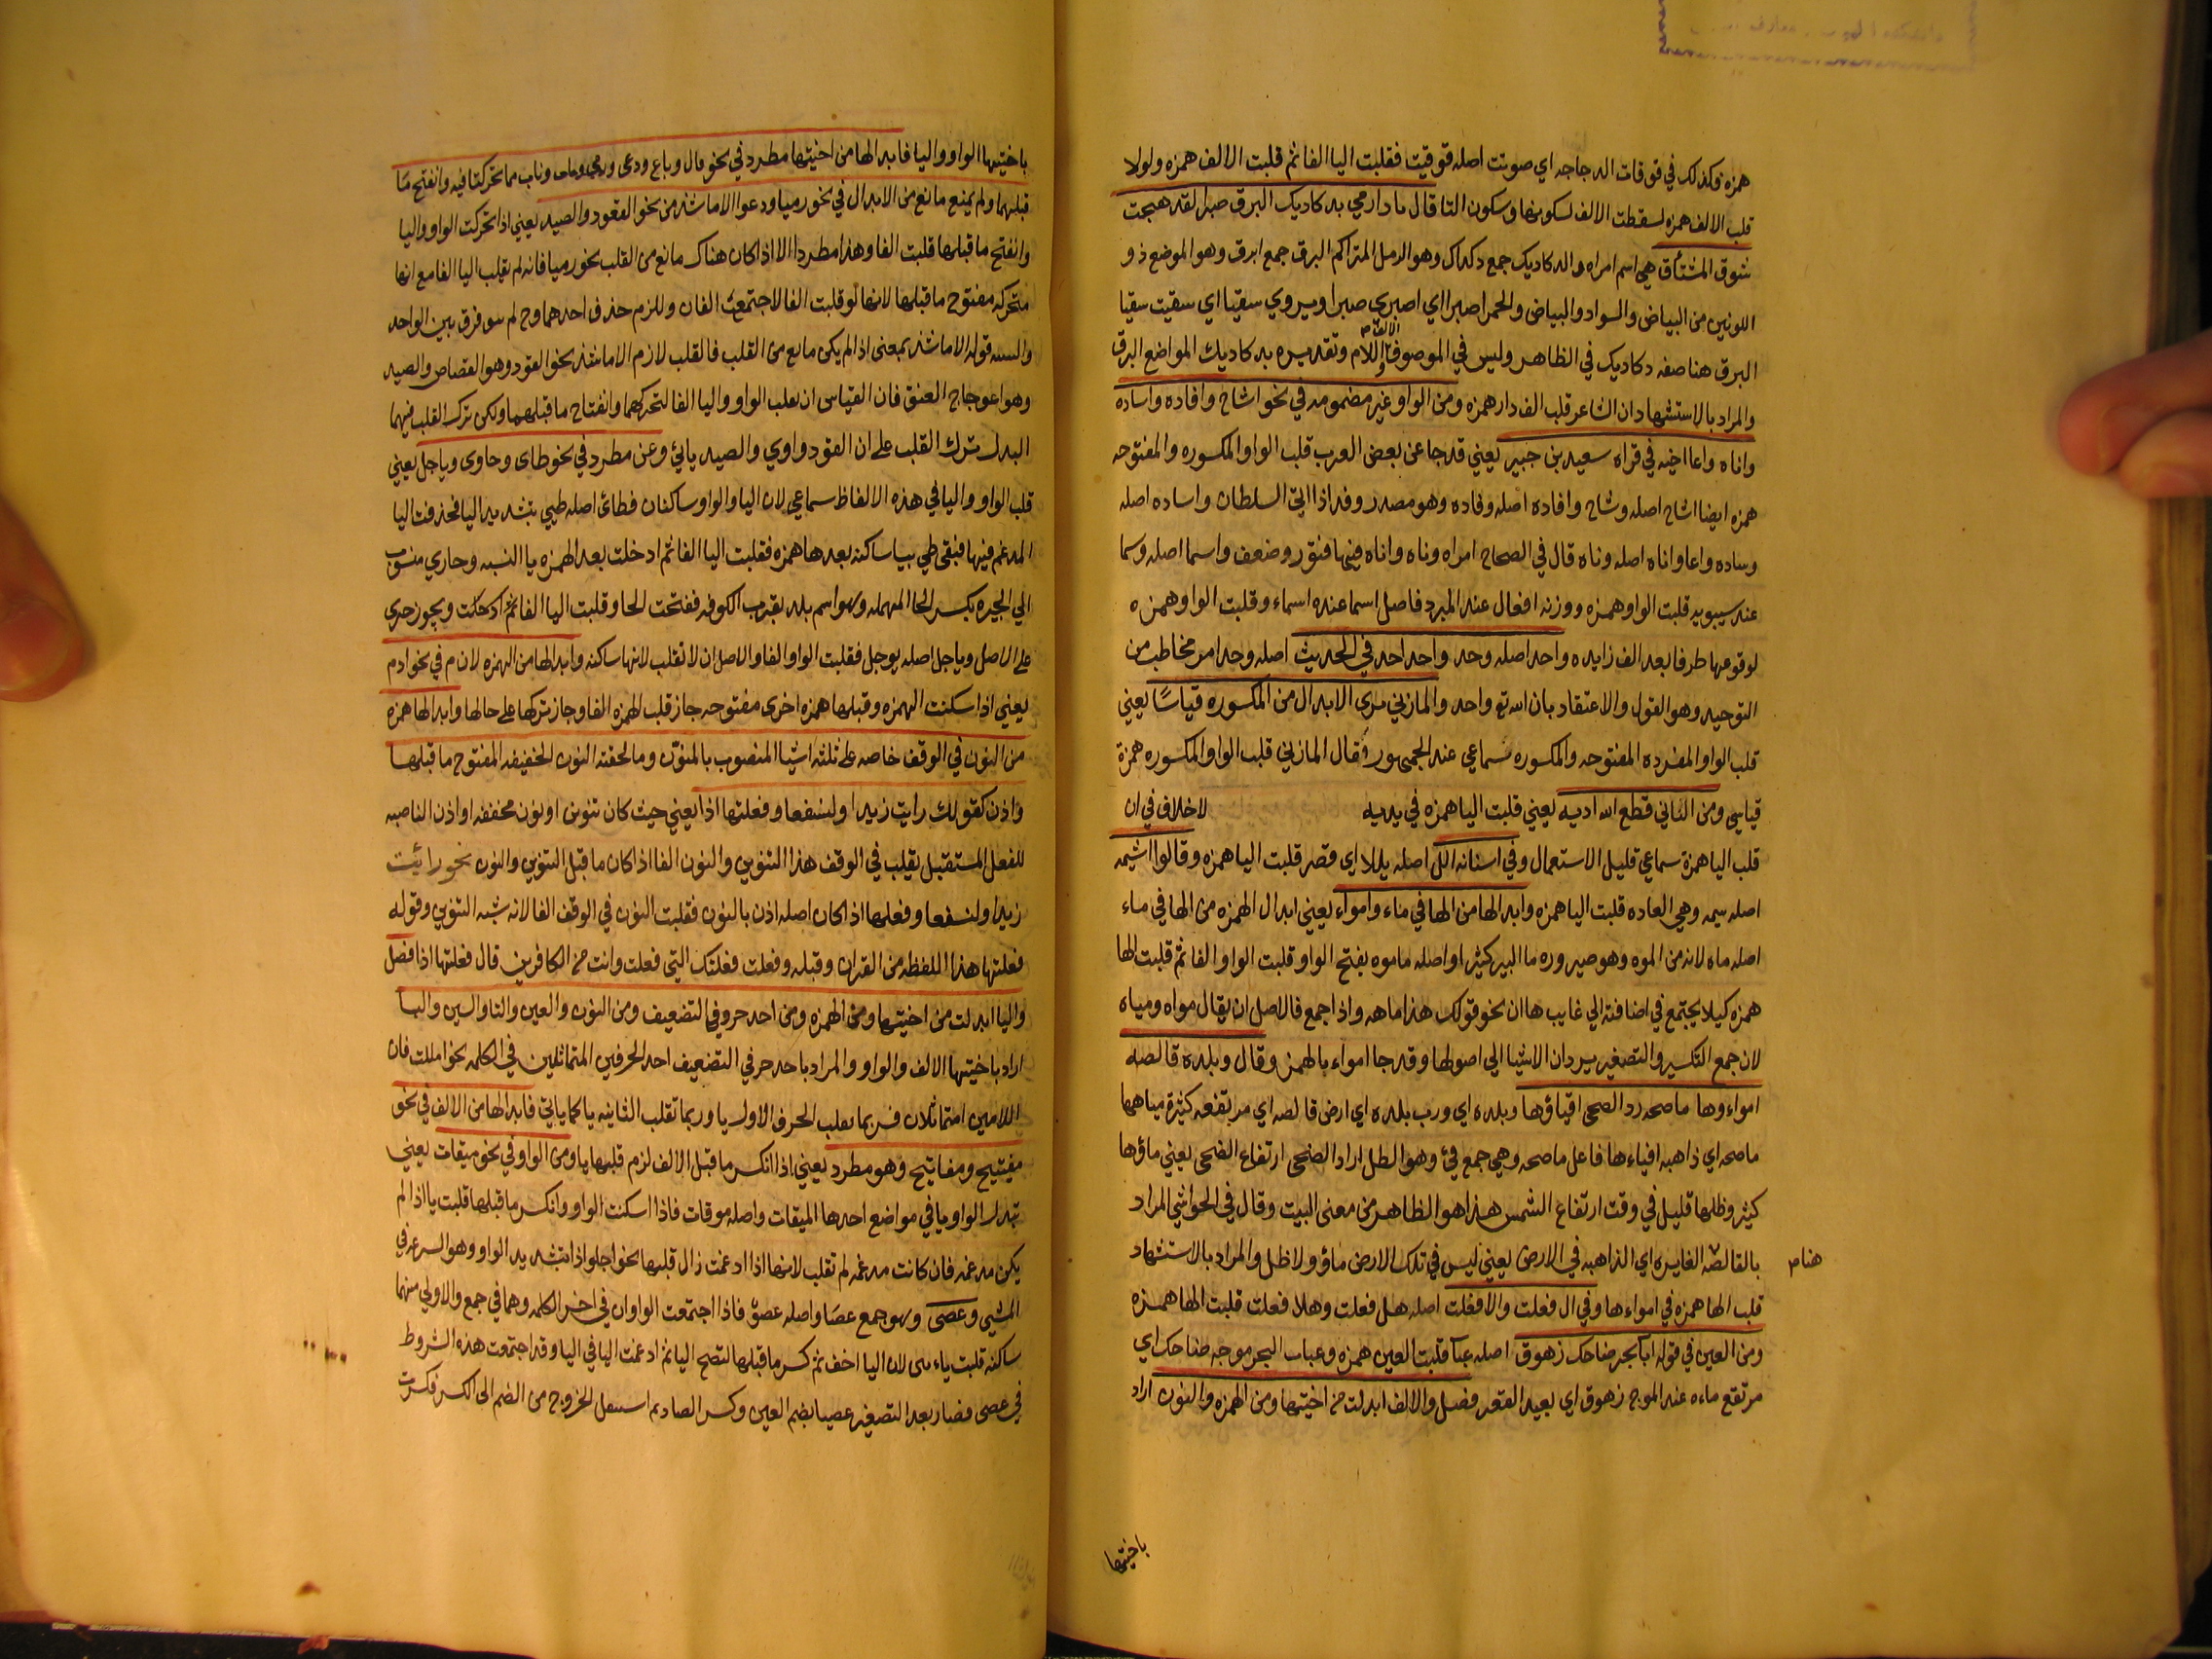 همزه وكذلك في قوقات الدجاجه اي صوتت اصله قوقيت فقلبت اليا الفا ثم قلبت الالف همزه ولولا
قلب الالف همزه لسقطت الالف لسكونها وسكون التا قال يا دار مي بدكاديك البرق صبرا لقد هيجت
شوق المشتأق هي اسم امراه والدكاديك جمع دكداك وهو الرمل المتراكم البرق جمع ابرق وهو الموضع ذو
اللونين من البياض والسواد والبياض والحمرا صبرا اي اصبري صبرا ويروي سقيا اي سقيت سقيا
البرق هنا صفه دكاديك في الظاهر وليس في الموصوف الالف واللام وتقديره بدكاديك المواضع البرق
والمراد بالاستشهاد ان الشاعر قلب الف دار همزه ومن الواو غير مضمومه في نحو اشاح وافاده واساده
واناه واعا اخيه في قراه سعيد بن جبير يعني قد جا عن بعض العرب قلب الواو المكسوره والمفتوحه
همزه ايضا اشاح اصله وشاح وافاده اصله وفاده وهو مصدر وفد اذا اتي السلطان واساده اصله
وساده واعا واناه اصله وناه قال في الصحاح امراه وناه واناه فيها فتور وضعف واسما اصله وسما
عند سيبويه قلبت الواو همزه ووزنه افعال عند المبرد فاصل اسما عنده اسماء وقلبت الواو همزه
لوقوعها طرفا بعد الف زايده واحد اصله وحد واحد احد في الحديث اصله وحد امر مخاطب من
التوحيد وهو القول والاعتقاد بان الله تع واحد والمازني يرى الابدال من المكسوره قياسًا يعني
قلب الواو المفرده المفتوحه والمكسوره سماعي عند الجمهور وقال المازني قلب الواو المكسوره همزة
قياسي ومن الثاني قطع الله اديه يعني قلبت اليا همزه في يديه لا خلاف في ان
قلب اليا همزة سماعي قليل الاستعمال وفي اسنانه الل اصله يللا اي قصر قلبت اليا همزه وقالوا اشيمه
اصله سيمه وهي العاده قلبت اليا همزه وابدالها من الها في ماء وامواء يعني ابدال الهمزه من الها في ماء
اصله ماه لانه من الموه وهو صيروره ما البير كثيرا واصله ماموه بفتح الواو قلبت الواو الفا ثم قلبت الها
همزه كيلا يجتمع في اضافته الي غايب هاان نحو قولك هذا ماهه واذا جمع فالاصل ان يقال مواه ومياه
لان جمع التكسير والتصغير يردان الاشيا الي اصولها وقد جا امواء بالهمز وقال وبلده قالصه
امواءوها ماصحه رد الضحى افياؤها وبلده اي ورب بلده اي ارض قالصه اي مرتفعه كثيرة مياهها
ماصحه اي ذاهبه افياءها فاعل ماصحه وهي جمع فئ وهو الظل اراد الضحى ارتفاع الضحى يعني ماؤها
كثير وظلها قليل في وقت ارتفاع الشمس هذا هو الظاهر من معنى البيت وقال في الحواشي المراد
بالقالصه الغايره اي الذاهبه في الارض يعني ليس في تلك الارض ماؤ ولا ظل والمراد بالاستشهاد
هنا م
قلب الها همزه في امواءها وفي ال فعلت والافعلت اصله هل فعلت وهلا فعلت قلبت الها همزه
ومن العين في قوله اباب بحر ضاحك زهوق اصله عباب قلبت العين همزه وعباب البحر موجه ضاحك اي
مرتفع ماءه عند الموج زهوق اي بعيد القعر فصل والالف ابدلت من اختيها ومن الهمزه والنون اراد
باختيها
باختيها الواو واليا فابدالها من اختيها مطرد في نحو قال وباع ودعى ورمى وباب وناب مما تحركتا فيه وانفتح ما
قبلهما ولم يمنع مانع من الابدال في نحو رميا ودعوا الا ما شذ من نحو القود والصيد يعني اذا تحركت الواو واليا
وانفتح ما قبلها قلبت الفا وهذا مطرد الا اذا كان هناك مانع من القلب نحو رميا فانه لم يقلب اليا الفا مع انها
متحركه مفتوح ما قبلها لانها لو قلبت الفا لاجتمعت الفان وللزم حذف احدهما وح لم فرق بين الواحد
قوله الا ما شذ بمعنى اذا لم يكن مانع من القلب فالقلب لازم الا ما شذ نحو القود وهو القصاص والصيد
وهو اعوجاج العنق فان القياس ان يقلب الواو واليا الفا لتحركهما وانفتاح ما قبلهما ولكن ترك القلب فيهما
ليدل ترك القلب على ان القود واوي والصيد يائي وغير مطرد في نحو طاى وحاوى وياجل يعني
قلب الواو واليا في هذه الالفاظ سماعي لان اليا والواو ساكنان فطائ اصله طيي بتشديد اليا فحذفت اليا
المدغم فيها فبقى طي بيا ساكنه بعدها همزه فقلبت اليا الفا ثم ادخلت بعد الهمزه يا النسبه وحاري منسوب
الي الحيره بكسر الحا المهمله وهو اسم بلد بقرب الكوفه ففتحت الحا وقلبت اليا الفا ثم ادخلت ويجوز حيرى
على الاصل وياجل اصله يوجل فقلبت الواو الفا والاصل ان لا تقلب لانها ساكنه وابدالها من الهمزه لازم في نحو ادم
يعني اذا سكنت الهمزه وقبلها همزه اخرى مفتوحه جاز قلب الهمزه الفا وجاز تركها على حالها وابدالها همزه
من النون في الوقف خاصه على ثلثه اشيا المنصوب بالمنوّن وما لحقته النون الخفيفه المفتوح ما قبلها
واذن كقولك رايت زيدا ولنسفعا وفعلتها اذا يعني حيث كان تنوين او نون مخففه او اذن الناصبه
للفعل المستقبل يقلب في الوقف هذا التنوين والنون الفا اذا كان ما قبل التنوين والنون نحو رائيت
زيدا ولنسفعا وفعلتها اذا كان اصله اذن بالنون فقلبت النون في الوقف الفا لانه شبه التنوين وقوله
فعلتها هذا اللفظه من القران وقبله وفعلت فعلتك التي فعلت وانت من الكافرين قال فعلتها اذا فصل
واليا ابدلت من اختيها ومن الهمزه ومن احد حروفي التضعيف ومن النون والعين والتا والسين والبا
اراد باختيها الالف والواو والمراد باحد حرفي التضعيف احد الحرفين المتماثلين في الكلمه نحو امللت فان
اللامين متماثلان فربما يقلب الحرف الاول يا وربما تقلب الثانيه يا كما ياتي فابدالها من الالف في نحو
مفيتيح ومفاتيح وهو مطرد يعني اذا انكسر ما قبل الالف لزم قلبها يا ومن الواو في نحو ميقات يعني
تبدل الواو يا في مواضع احدها الميقات واصله موقات فاذا اسكنت الواو وانكسر ما قبلها قلبت يا اذا لم
يكن مدغمه فان كانت مدغمه لم تقلب لانها اذا ادغمت زال قلبها نحو اجلواذا بتشديد الواو وهو السرعه في
المشي وعصى وهو جمع عصًا واصله عصوّ فاذا اجتمعت الواوان في اخر الكلمه وهما في جمع والاولي منهما
ساكنه قلبت ياء لان اليا اخف ثم كسر ما قبلها لتصح اليا ثم ادغمت اليا في اليا وقد اجتمعت هذه الشروط
في عصى فصار بعد التصغير عصيا بضم العين وكسر الصاد ثم استثقل الخروج من الضم الى الكسر فكسرت